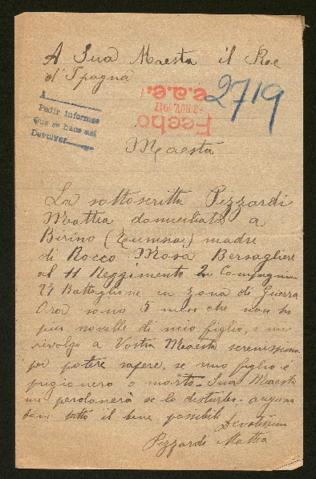 A Sua Maesta il Roe
d'Spagna
A
Pedir informes
Que se hano así
Devolver
Fecho
2719
Maestá
La sottoscritta Pizzardi
Mattia domiciliata a
di Rocco Mosa Bersagliere
al 11 Reggimento 2 Compagnia
27 Battaglione in zona di Guerra
Ora sono 5 mesi che non ho
piu novelle di mio figlio, e mi
rivolgo a Vostra Maesta serenissima
per potere sapere, se mio figlio è
prigionero o morto. Sua Maesta
mi perdonerà se lo disturbo. auguran
tutto il bene possibile
Pizzardi Mattia